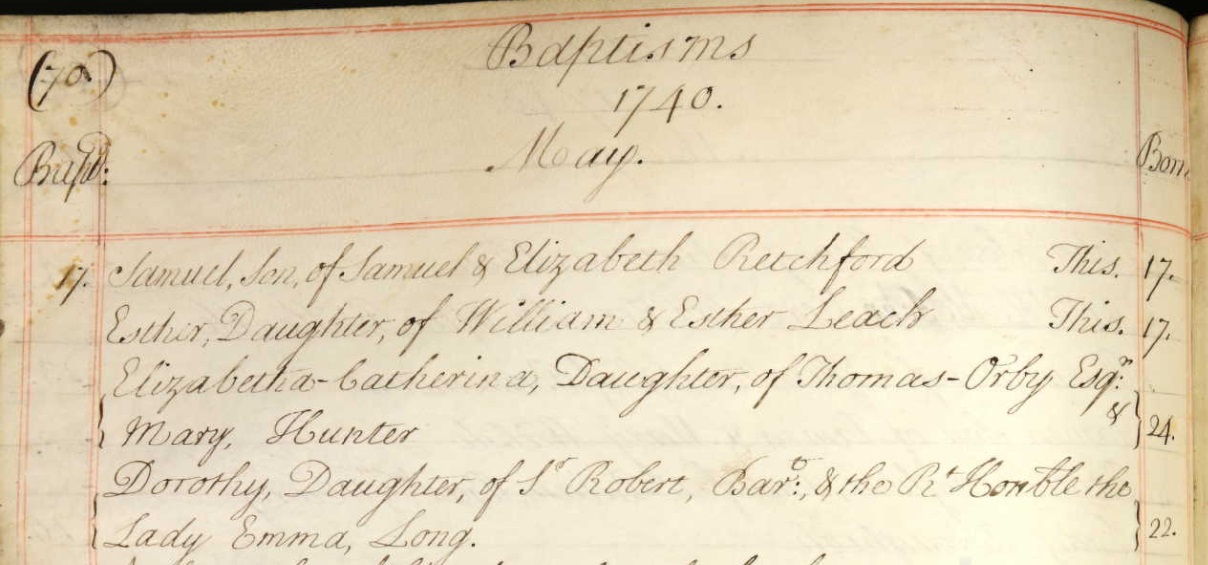 (70.)
Baptisms
1740.
May.
Bap^d: Born
17. Samuel, Son, of Samuel & Elizabeth Retchford This. 17.
Esther, Daughter, of William & Esther Leach This. 17.
Elizabetha-Catherina, Daughter, of Thomas-Orby Esq^r: &
Mary, Hunter 24.
Dorothy, Daughter, of S^r Robert, Bar^t:, & the R^t Hon^ble the
Lady Emma, Long. 22.